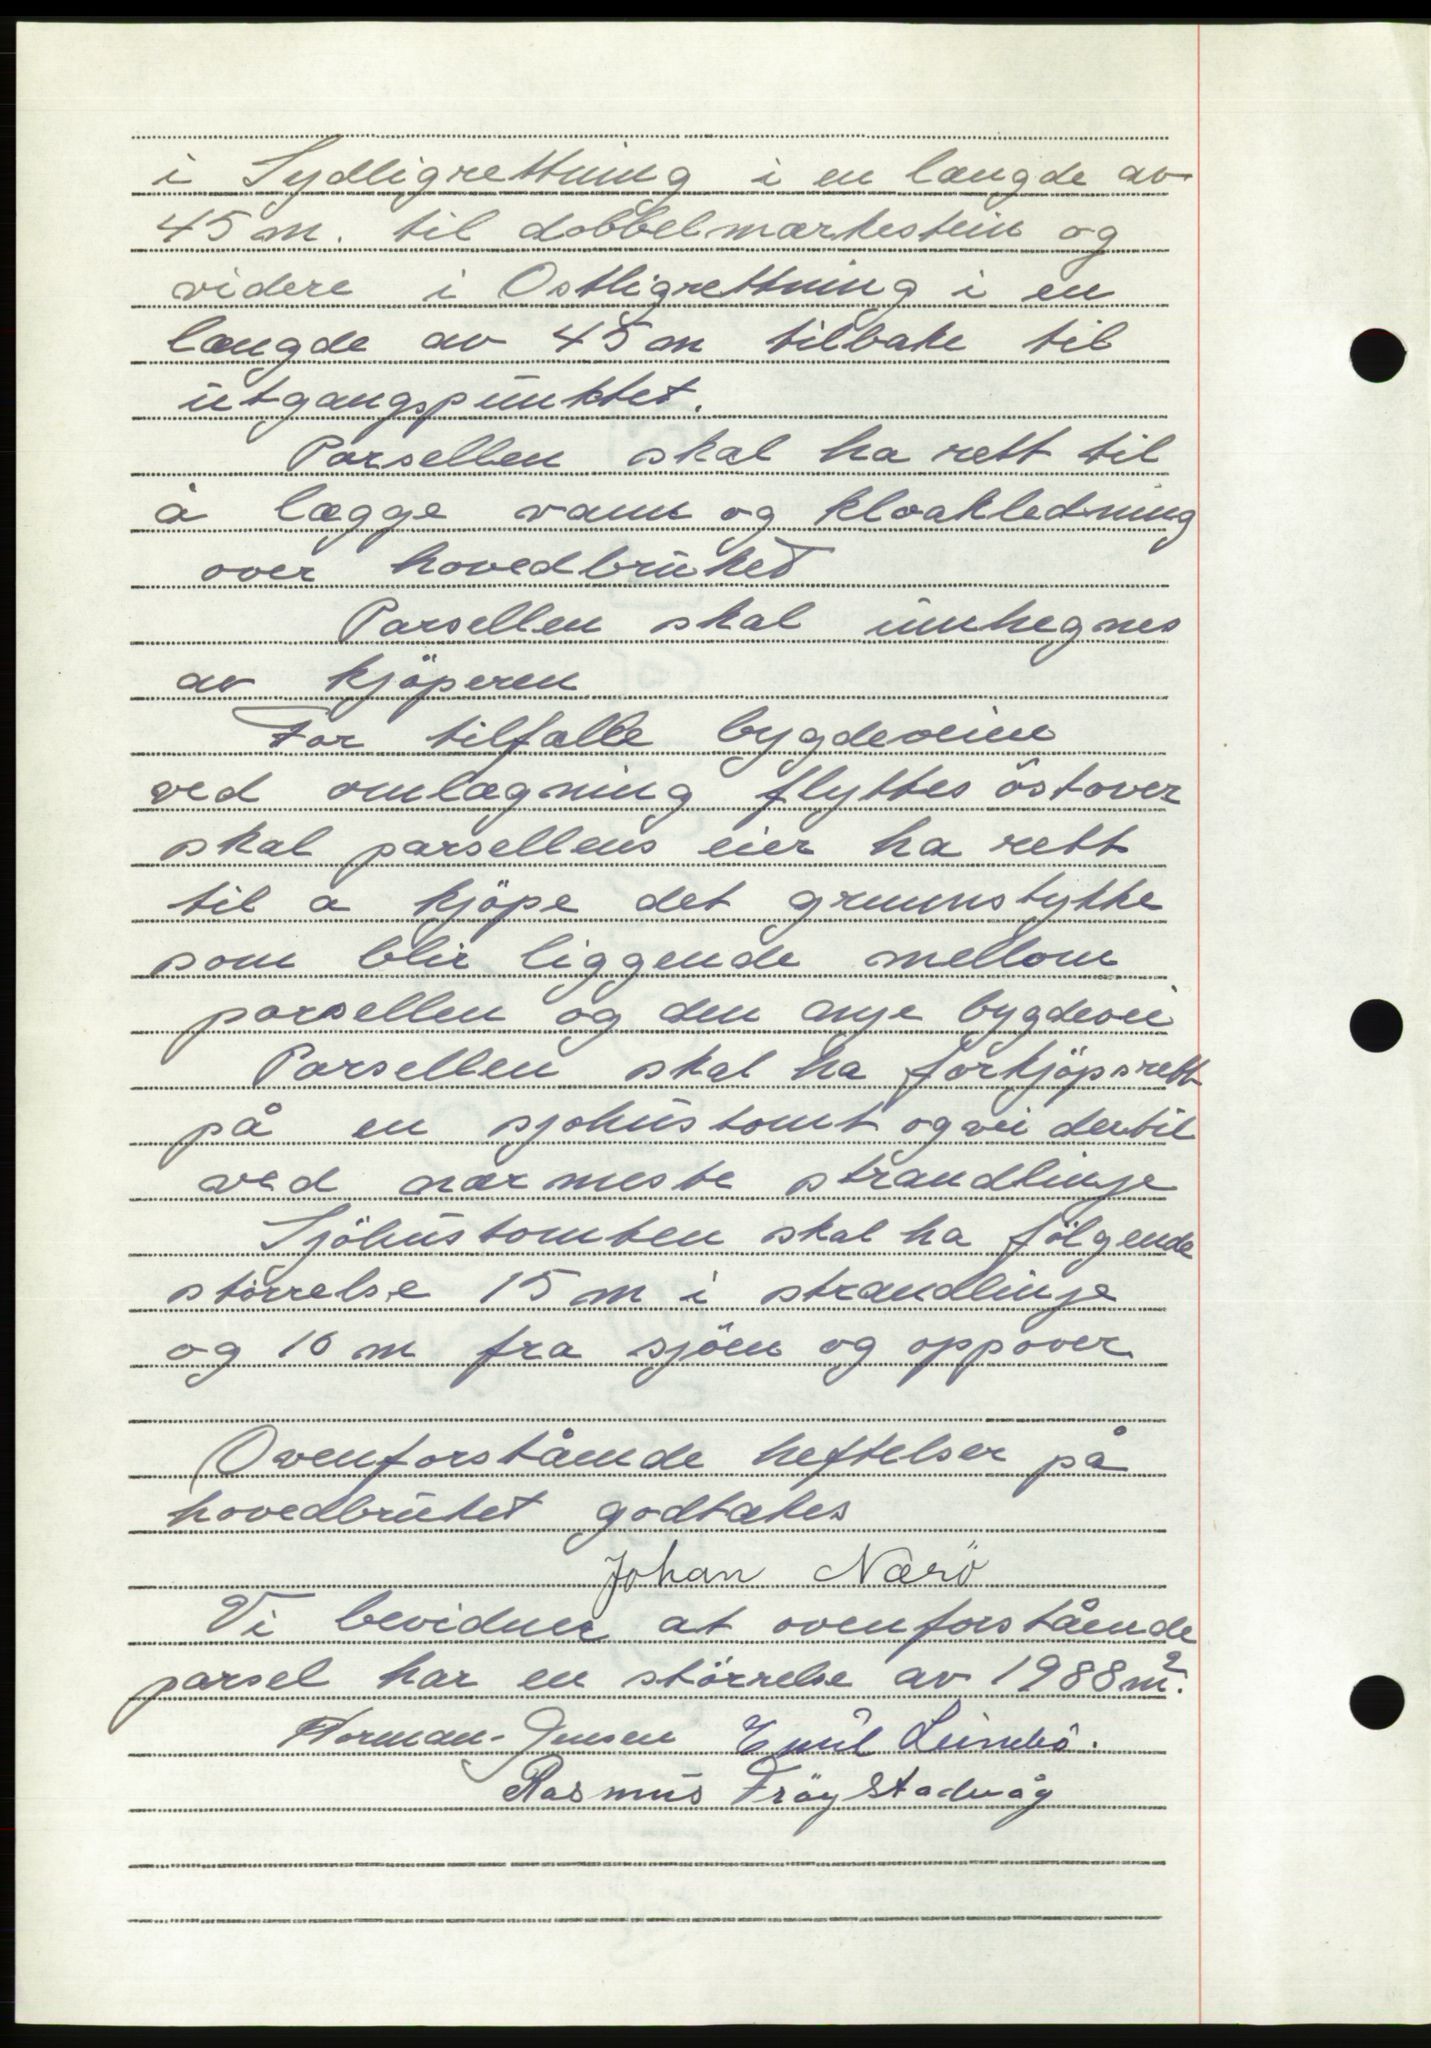 i Sydligrettning i en længde av
45 m. til dobbelmærkestein og
videre i Østligrettning i en
længde av 45 m tilbake til
utgangspunktet.
Parsellen skal ha rett til
å lægge vann og kloakledning
over hovedbruket
Parsellen skal innhegnes
av kjöperen
For tilfælle bygdeveien
ved omlægning flyttes östover
skal parsellens eier ha rett
til a kjöpe det grunnstykke
som blir liggende mellom
parsellen og den nye bygdevei
Parsellen skal ha forkjöpsrett
på en sjohustomt og vei dertil
ved nærmeste strandlinje
Sjöhustomten skal ha fölgende
störrelse 15 m i strandlinje
og 10 m fra sjöen og oppover
Ovenforstående heftelser på
hovedbruket godtakes
Johan Nærö
Vi bevidner at ovenforstående
parsel har en störrelse av 1988 m².
Jensen Emil
Rasmus Fröystadvåg